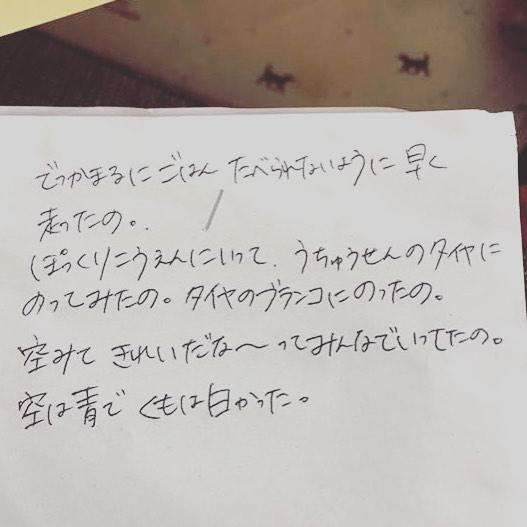 でっかまるにごはん たべられないように早く
走ったの。
ぽっくりこうえんにいって、うちゅうせんのタイヤに
のってみたの。タイヤのブランコにのったの。
空みて きれいだな〜ってみんなでいってたの。
空は青で くもは白かった。